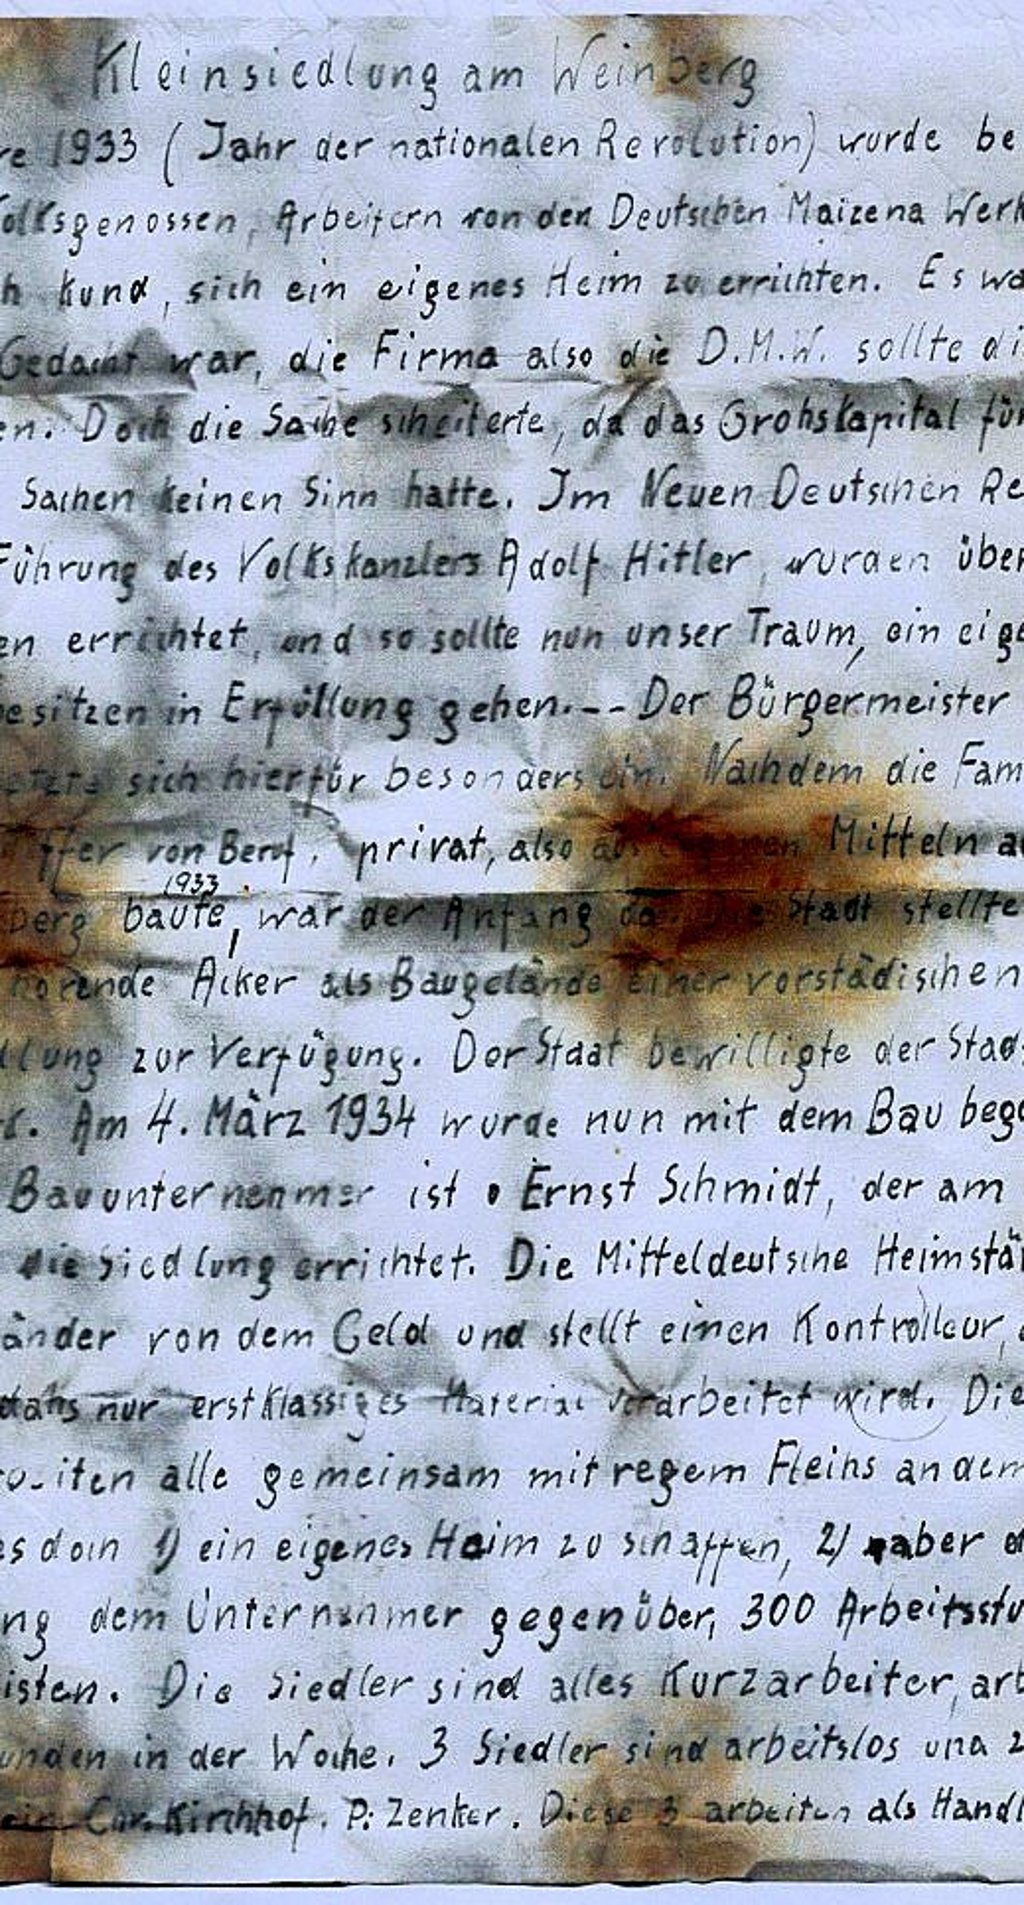 Kleinsiedlung am Weinberg
re 1933 (Jahr der nationalen Revolution) wurde be
olksgenossen, Arbeitern von den Deutschen Maizena Werk
h kund, sich ein eigenes Heim zu errichten. Es wa
Gedacht war, die Firma also die D.M.W. sollte di
en. Doch die Sache scheiterte, da das Grohskapital für
Sachen keinen Sinn hatte. Im Neuen Deutschen Re
Führung des Volkskanzlers Adolf Hitler, wurden über
en errichtet, und so sollte nun unser Traum, ein eige
besitzen in Erfüllung gehen.-- Der Bürgermeister
etzte sich hierfür besonders ein. Nachdem die Fam
von Beruf, privat, also aus Mitteln a
1933
berg baute, war der Anfang da. Die Stadt stellte
hörende Acker als Baugelände einer vorstädischen
llung zur Verfügung. Der Staat bewilligte der Stad
Am 4. März 1934 wurde nun mit dem Bau bego
Bauunternehmer ist Ernst Schmidt, der am
die Siedlung errichtet. Die Mitteldeutsche Heimstä
änder von dem Geld und stellt einen Kontrolleur,
dahs nur erstklassiges Material verarbeitet wird. Die
eiten alle gemeinsam mit regem Fleihs an dem
es doch 1) ein eigenes Heim zu schaffen, 2) aber
ng dem Unternehmer gegenüber, 300 Arbeitsstu
isten. Die Siedler sind alles Kurzarbeiter, arb
unden in der Woche. 3 Siedler sind arbeitslos und
Chr. Kirchhof. P. Zenker. Diese 3 arbeiten als Handl